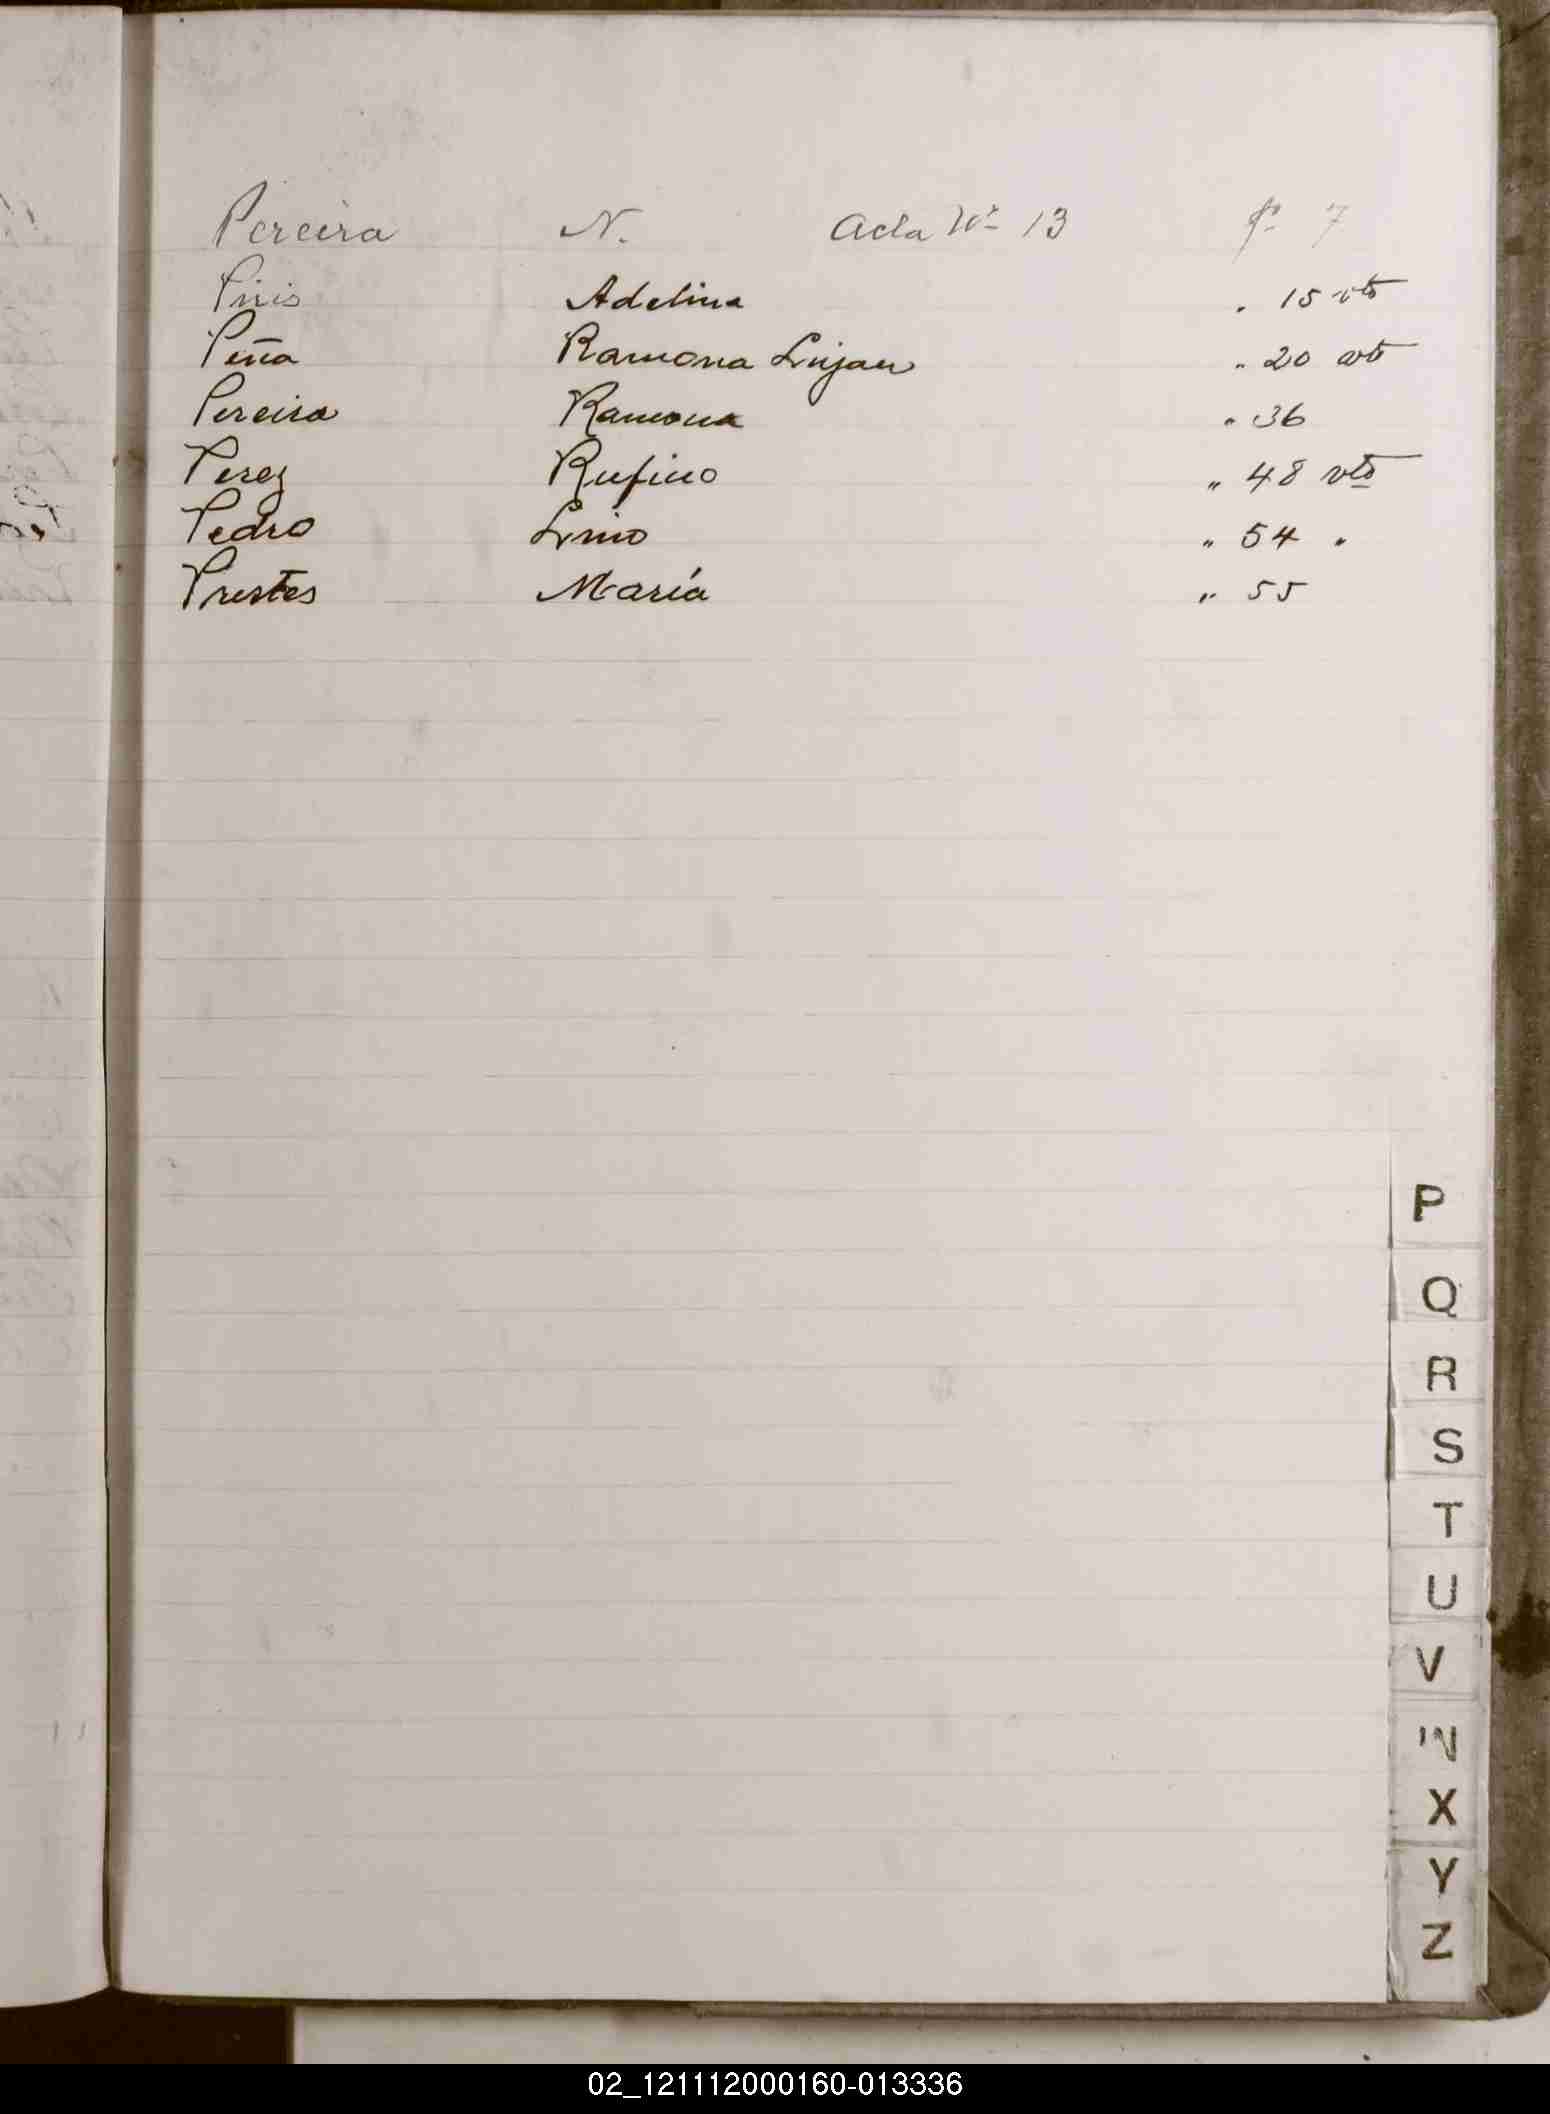 Pereira N. Acta Nº 13 Fº 7
Piris Adelina " 15 vto
Peña Ramona Lujan " 20 vto
Pereira Ramona " 36
Perez Rufino " 48 vto
Pedro Lino " 54 "
Prestes María " 55
P
Q
R
S
T
U
V
W
X
Y
Z
02_121112000160-013336